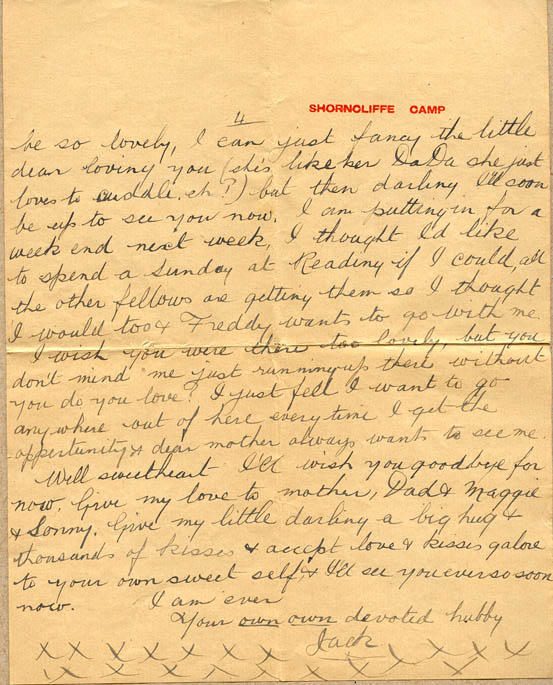 SHORNCLIFFE CAMP
4
be so lovely, I can just fancy the little
dear loving you (she's like her DaDa she just
loves to cuddle, eh?) but then darling I'll soon
be up to see you now. I am putting in for a
week end next week, I thought I'd like
to spend a Sunday at Reading if I could, all
the other fellows are getting them so I thought
I would too & Freddy wants to go with me.
I wish you were there too lovely, but you
don't mind me just running up there without
you do you love? I just feel I want to go
anywhere out of here everytime I get the
oppertunity & dear mother always wants to see me.
Well sweetheart I'll wish you goodbye for
now. Give my love to mother, Dad & Maggie
& Sonny. Give my little darling a big hug &
thousands of kisses & accept love & kisses galore
to your own sweet self, & I'll see you ever so soon
now. I am ever
Your own own devoted hubby
Jack
X X X X X X X X X X X X X
X X X X X X X X X X X X